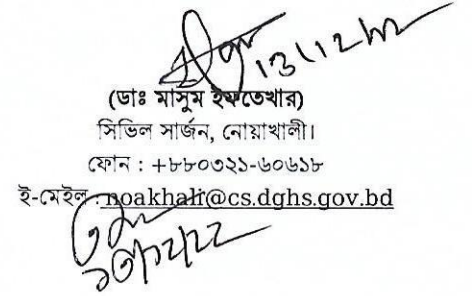 ১৩/১২/২২
(ডাঃ মাসুম ইফতেখার)
সিভিল সার্জন, নোয়াখালী।
ফোন : +৮৮০৩২১-৬০৬১৮
ই-মেইল : noakhali@cs.dghs.gov.bd
১৩/১২/২২